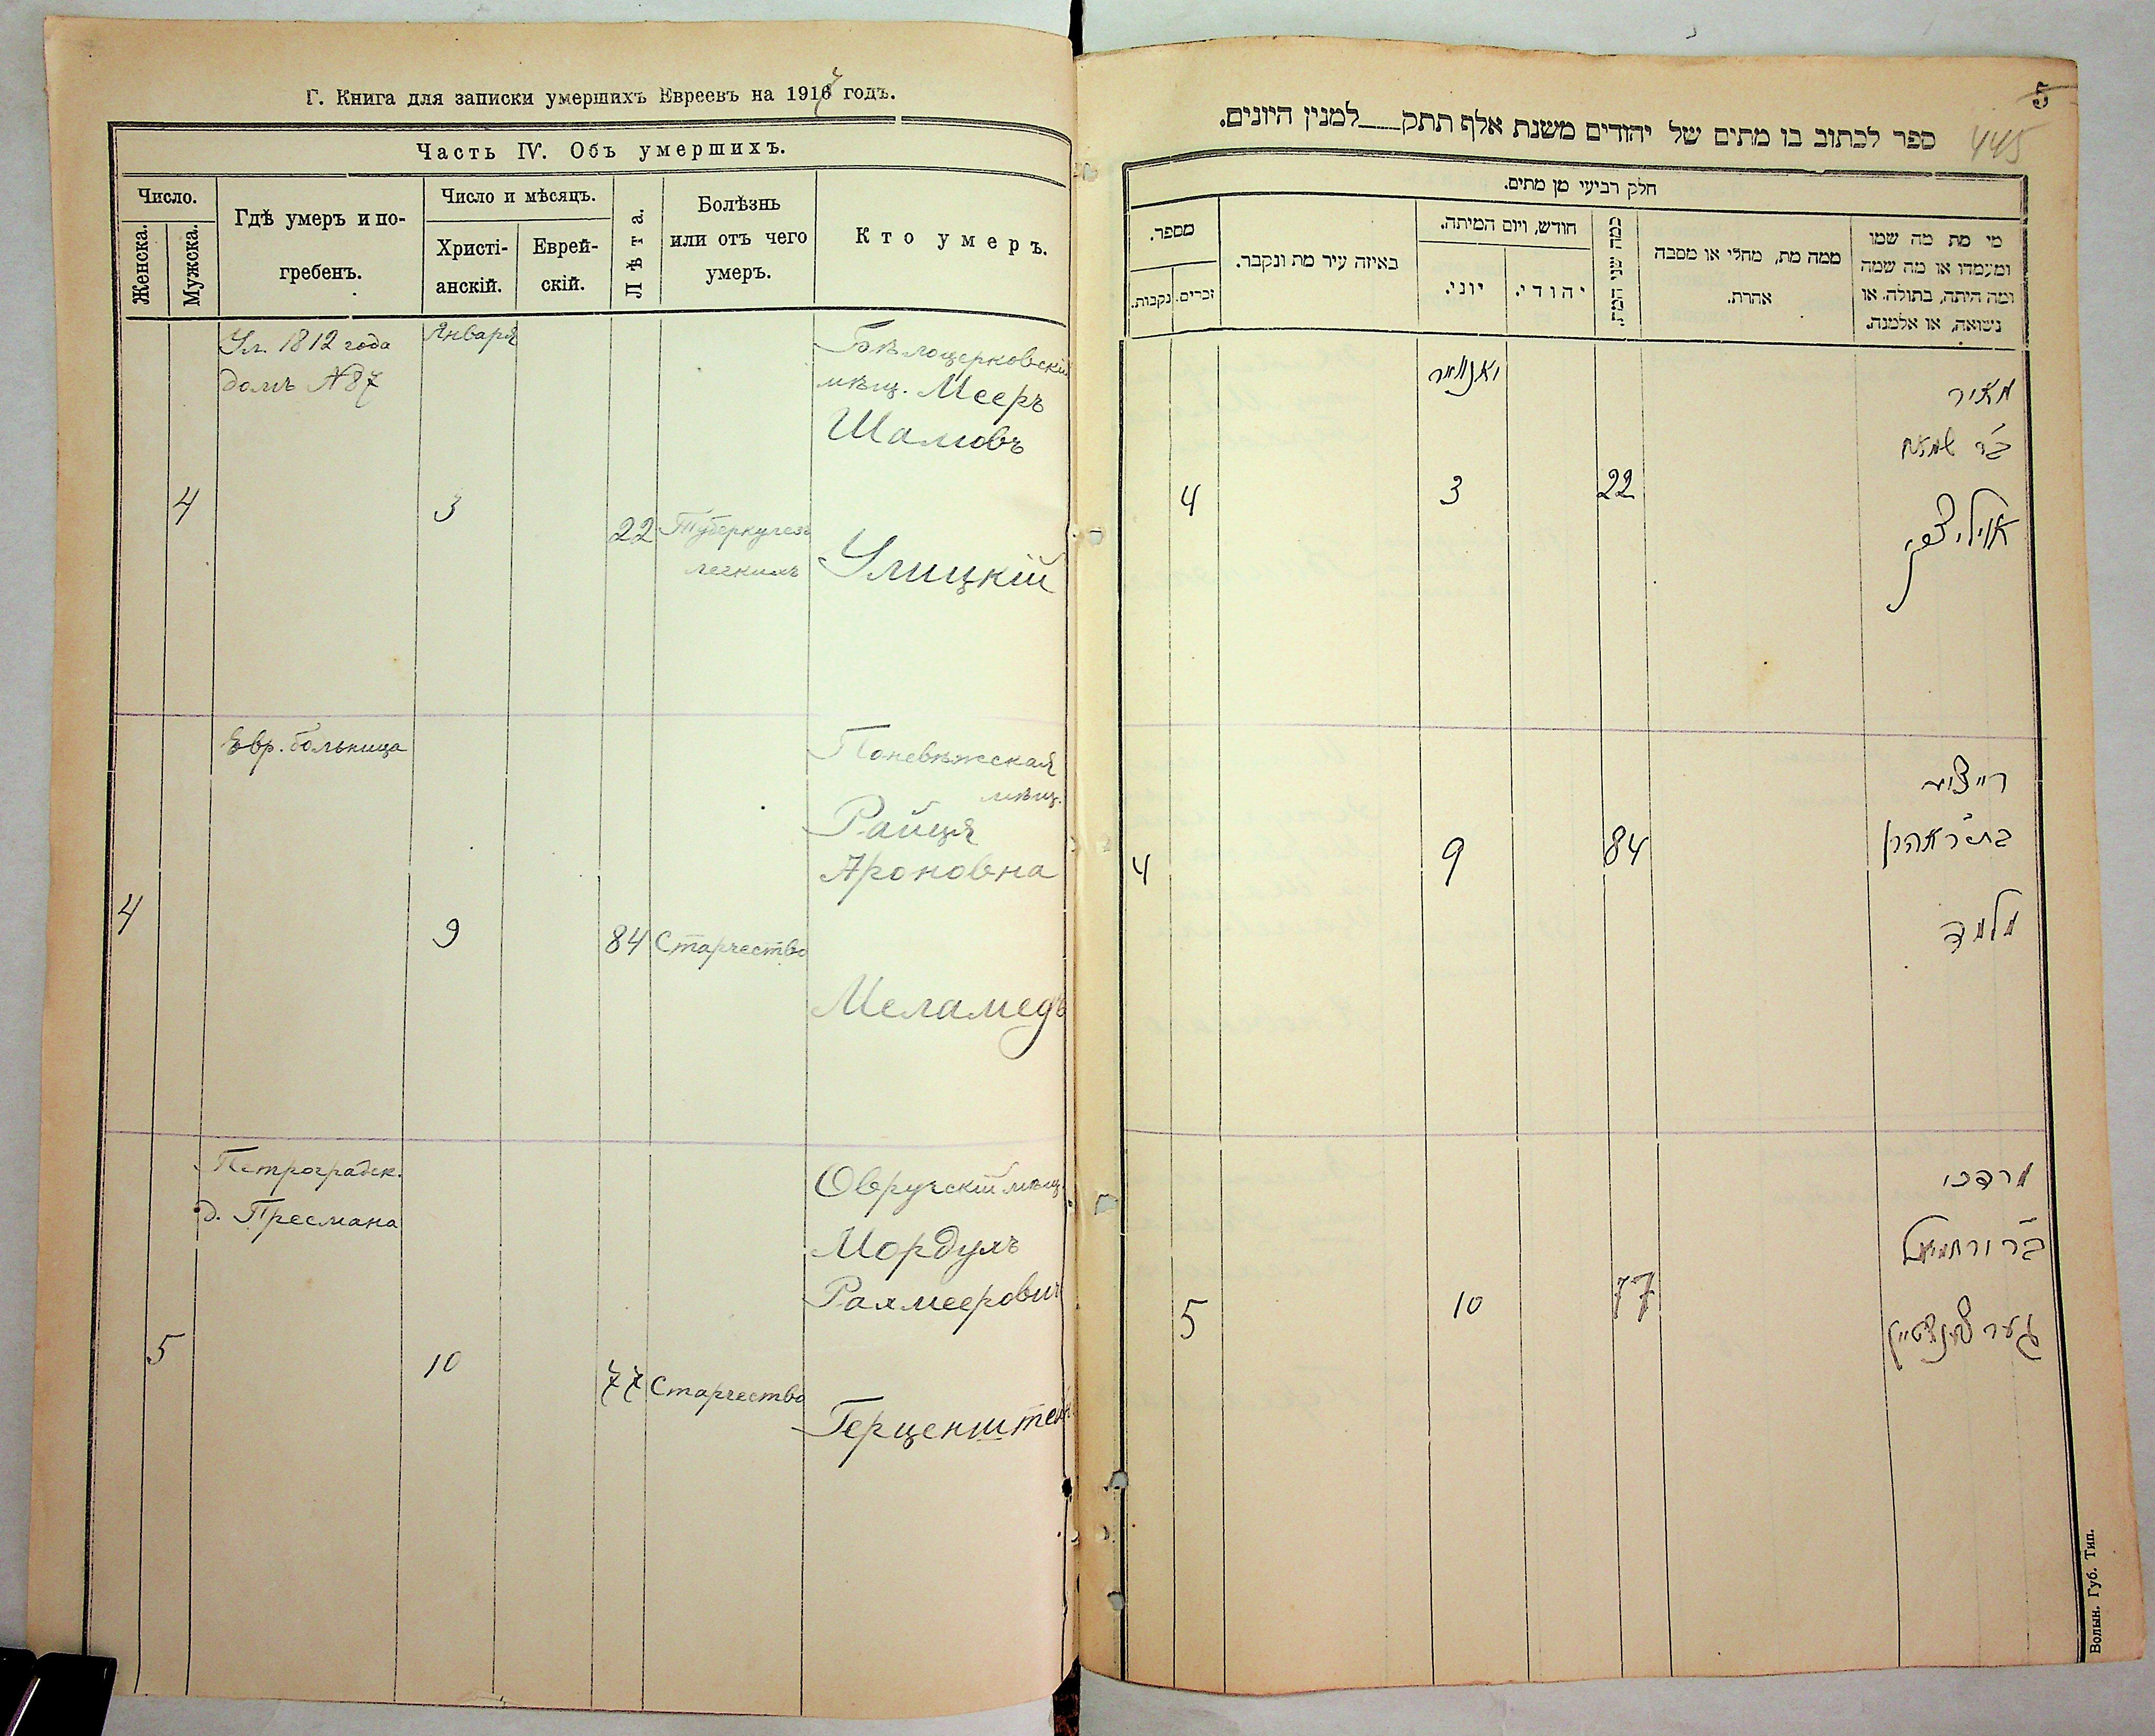 Г. Книга для записки умершихъ Евреевъ на 1917 годъ.
Часть IV. Объ умершихъ.
Число.
Женска.
Мужска.
Гдѣ умеръ и по-
гребенъ.
Число и мѣсяцъ.
Христі-
анскій.
Еврей-
скій.
Лѣта.
Болѣзнь
или отъ чего
умеръ.
Кто умеръ.
Ул. 1812 года
домъ №87
Января
Бѣлоцерковскій
мѣщ. Мееръ
4
3
22
Туберкулезъ
легкихъ
Улицкій
Евр. больница
Поневѣжская
мѣщ.
Райця
Ароновна
4
9
84
Старчество
Меламедъ
Петроградск.
д. Пресмана
Овручскій мѣщ.
Мордухъ
5
10
77
Старчество
Герценштейн
5
445
ספר לכתוב בו מתים של יהודים משנת אלף תתק למנין היונים.
חלק רביעי מן מתים.
מספר.
נקבות.
זכרים.
באיזה עיר מת ונקבר.
חודש, ויום המיתה.
יוני.
יהודי.
כמה שני המת
ממה מת, מחלי או מסבה
אחרת.
מי מת מה שמו
ומעמדו או מה שמה
ומה היתה, בתולה, או
נשואה, או אלמנה.
יאנואר
מאיר
4
3
22
רייציא
בת ר אהרן
4
9
84
מלמד
מרדכי
ב״ר ירחמיאל
5
10
77
הערצענשטיין
Волын. Губ. Тип.